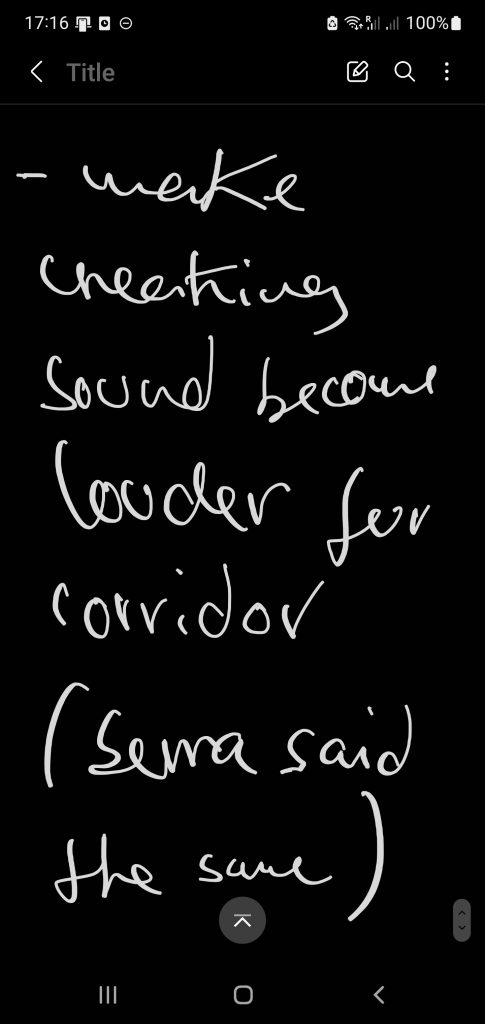 17:16 100%
Title
- make
creaking
sound become
louder for
corridor
(Serra said
the same)